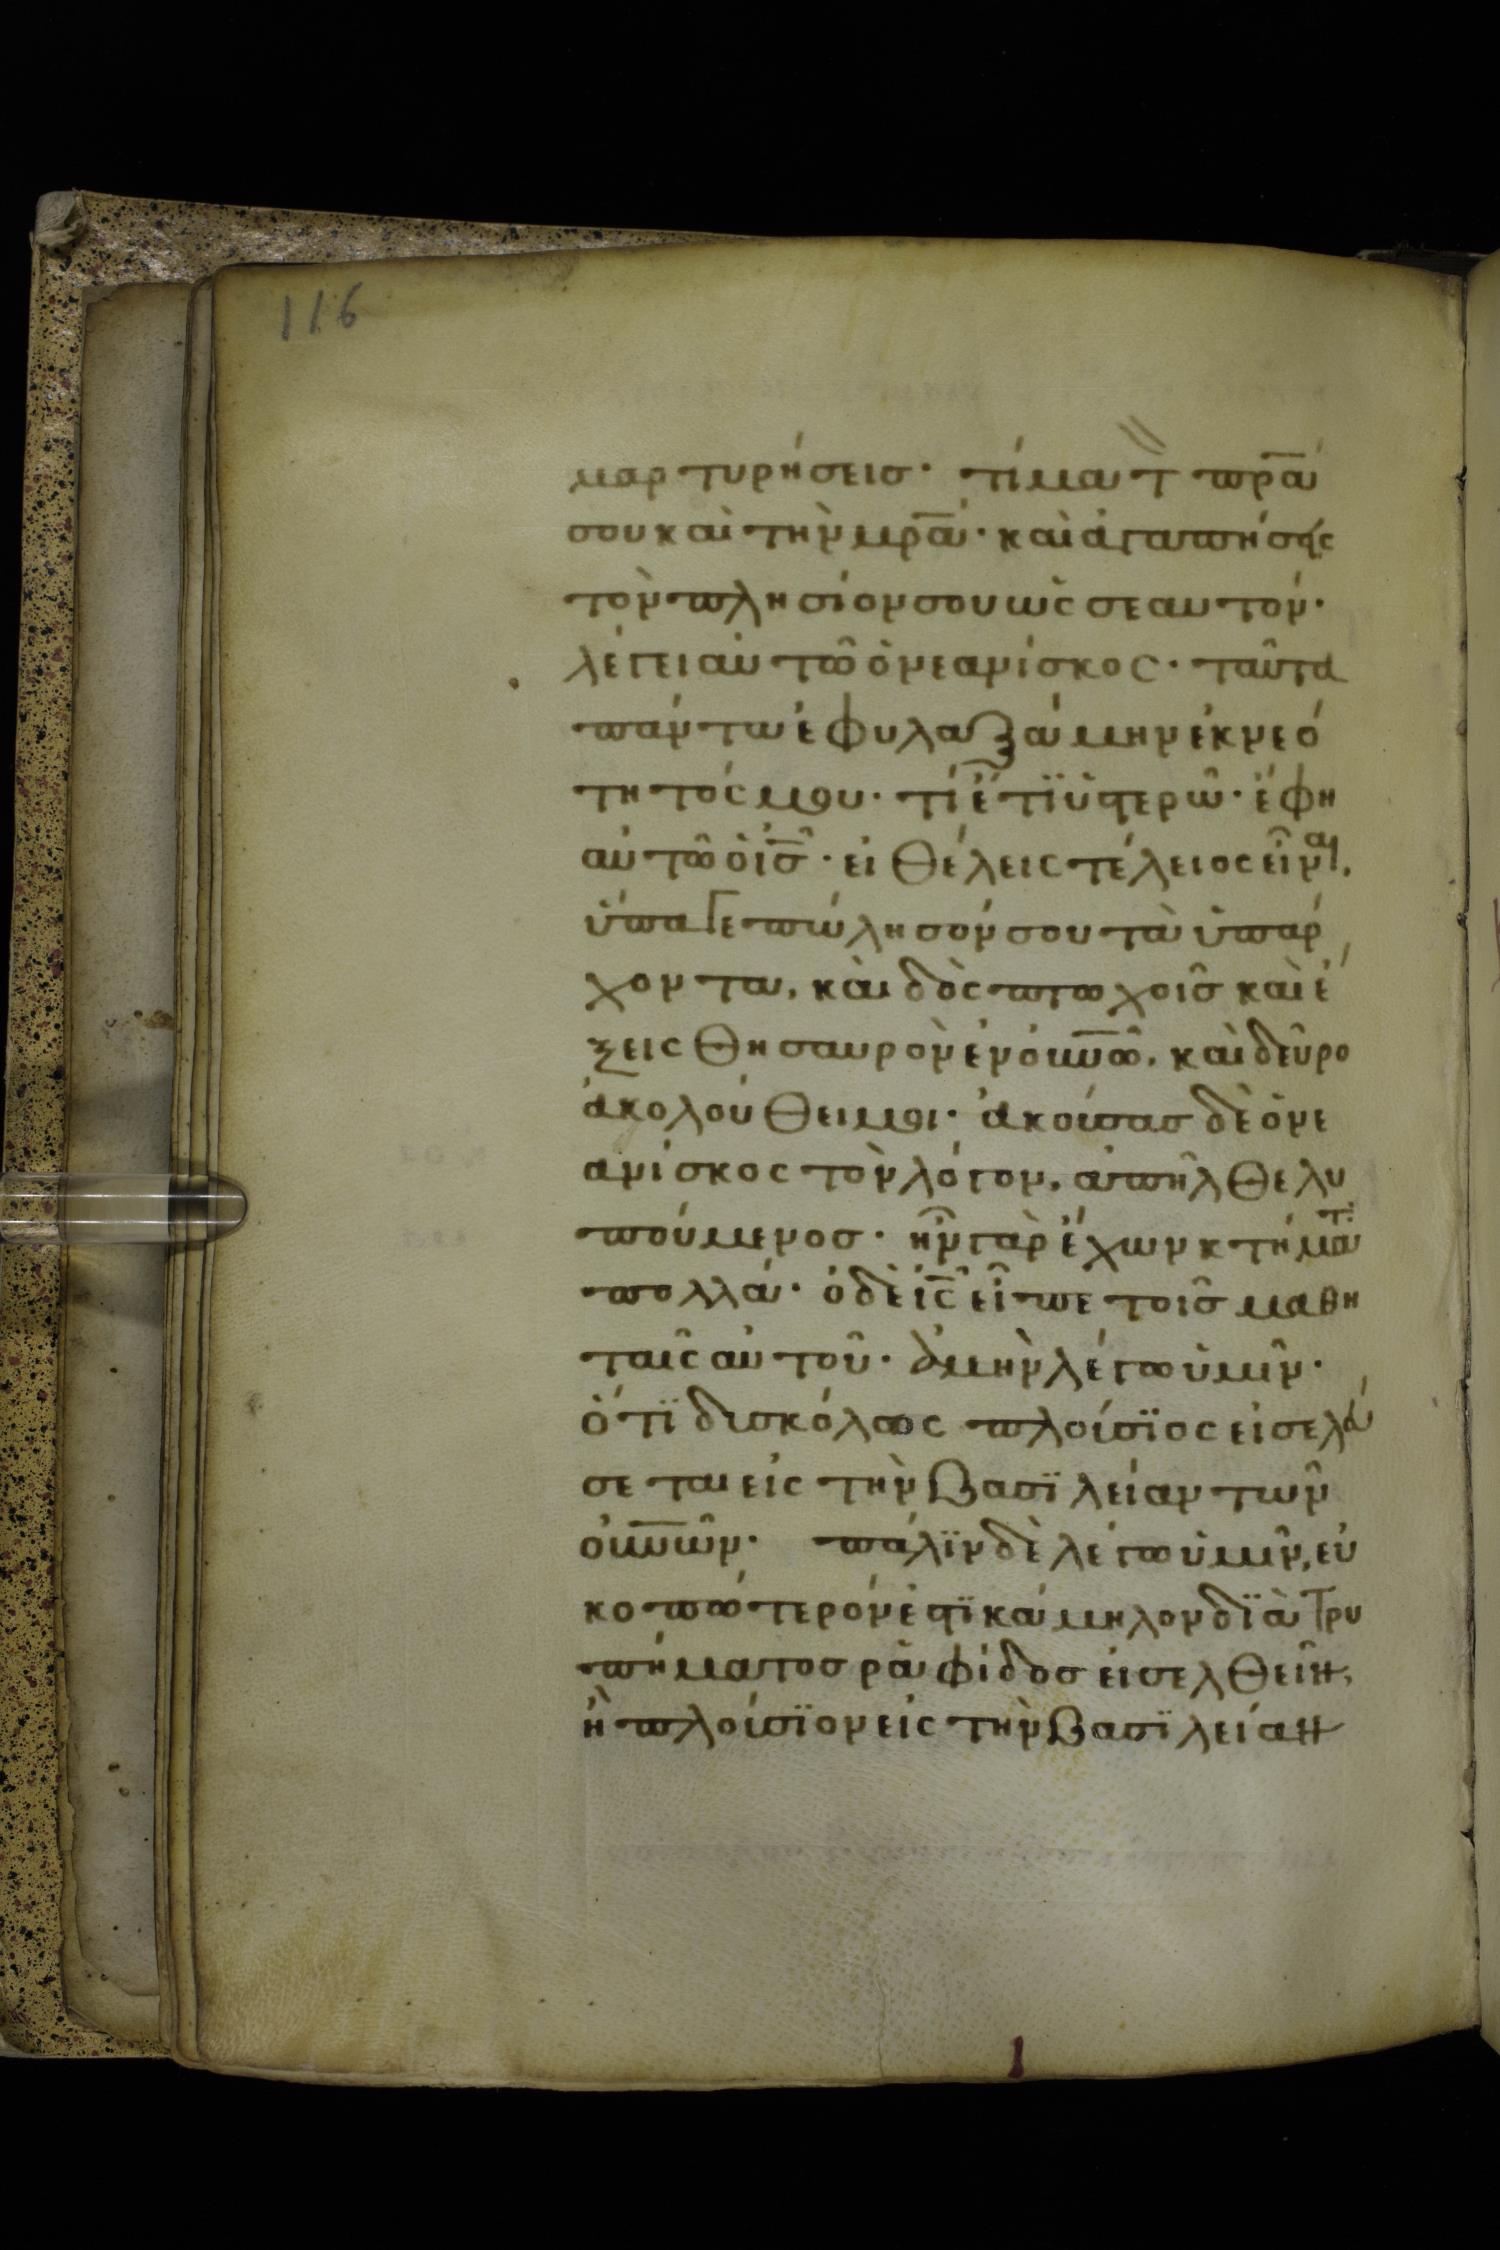 116
μαρτυρήσεισ· τίμα τ̀ πρ̅α
σου καὶ τὴν μρ̅α· καὶ ἀγαπήσεις
τὸν πλησίον σου ὡς σεαυτόν·
λέγει αὐτῶ ὁ νεανίσκος· ταῦτα
πάντα ἐφυλαξάμην ἐκ νεό
τητός μου· τί ἔτϊ ὑστερῶ· ἔφη
αὐτῶ ὁ ι̅σ̅· εἰ θέλεις τέλειος εἶναι,
ὕπαγε πώλησόν σου τὰ ὑπάρ
χοντα, καὶ δὸς πτωχοῖσ καὶ ἕ
ξεις θησαυρὸν ἐν ὀυ̅ν̅ω̅, καὶ δεῦρο
ἀκολούθει μοι· ἀκούσας δὲ ὁ νε
ανίσκος τὸν λόγον, ἀπῆλθε λυ
πούμενοσ· ἦν γὰρ ἔχων κτήματ
πολλά· ὁ δὲ ι̅ς̅ εἶπε τοῖσ μαθη
ταῖς αὐτοῦ· ἀμὴν λέγω ὑμῖν·
ὅτϊ δυσκόλως πλούσϊος εἰσελεύ
σεται εἰς τὴν βασϊλείαν τῶν
οὐ̅ν̅ῶν· πάλϊν δὲ λέγω ὑμῖν, εὐ
κοπώτερόν ἐστϊ κάμηλον δϊὰ τρυ
πήματοσ ραφίδοσ εἰσελθεῖν,
ἢ πλούσϊον εἰς τὴν βασϊλείαν